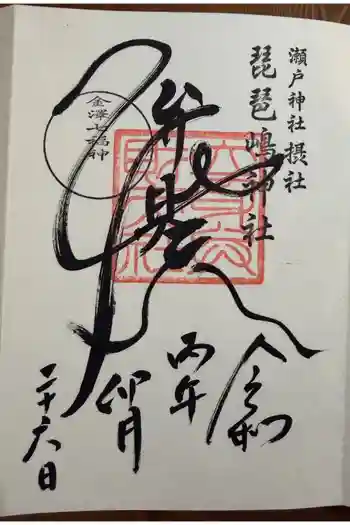 瀬戸神社摂社
琵琶嶋神社
弁財
金澤七福神
令和
丙午
卯月
二十六日